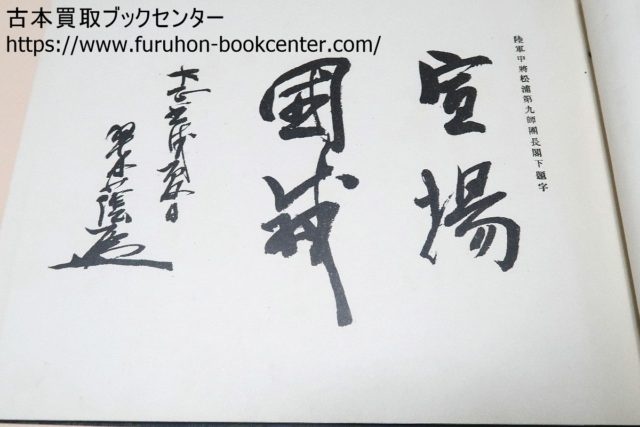 古本買取ブックセンター
https://www.furuhon-bookcenter.com/
陸軍中將松浦第九師團長閣下題字
宣揚
國威
大正壬戌夏日